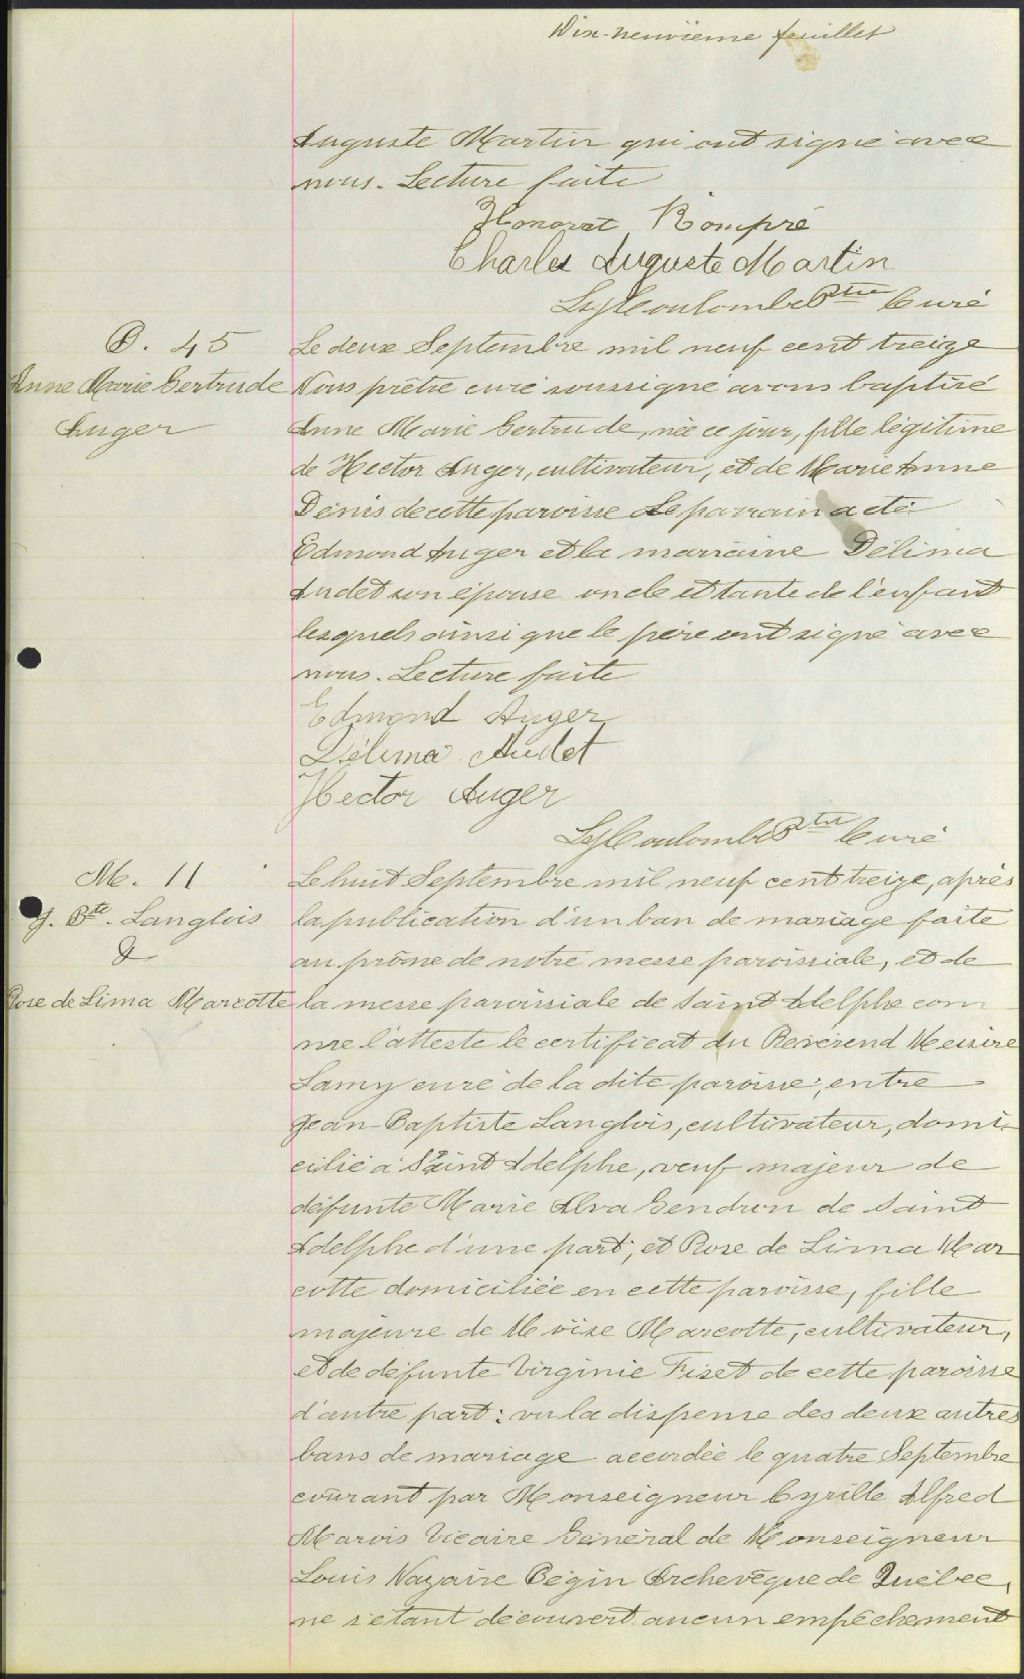 Dix-neuvième feuillet
Auguste Martin qui ont signé avec
nous. Lecture faite
Honorat Rompré
Charles Auguste Martin
Coulombe Ptre Curé
B. 45
Anne Marie Gertrude
Auger
Le deux Septembre mil neuf cent treize
Nous prêtre curé soussigné avons baptisé
Anne Marie Gertrude, née ce jour, fille légitime
de Hector Auger, cultivateur, et de Marie Anne
Dénis de cette paroisse Le parrain a été
Edmond Auger et la marraine Délima
Audet son épouse oncle et tante de l'enfant
lesquels ainsi que le père ont signé avec
nous. Lecture faite
Edmond Auger
Délima Audet
Hector Auger
Coulombe Ptre Curé
M. 11
J. Bte. Langlois
&
Rose de Lima Marcotte
Le huit Septembre mil neuf cent treize, après
la publication d'un ban de mariage faite
au prône de notre messe paroissiale, et de
la messe paroissiale de Saint Adelphe com
me l'atteste le certificat du Révérend Messire
Lamy curé de la dite paroisse; entre
Jean-Baptiste Langlois, cultivateur, domi-
cilié à Saint Adelphe, veuf majeur de
défunte Marie Alva Gendron de Saint
Adelphe d'une part; et Rose de Lima Mar
cotte domiciliée en cette paroisse, fille
majeure de Moïse Marcotte, cultivateur,
et de défunte Virginie Fiset de cette paroisse
d'autre part: vu la dispense des deux autres
bans de mariage accordée le quatre Septembre
courant par Monseigneur Cyrille Alfred
Marois Vicaire Général de Monseigneur
Louis Nazaire Bégin Archevêque de Québec,
ne s'étant découvert aucun empêchement